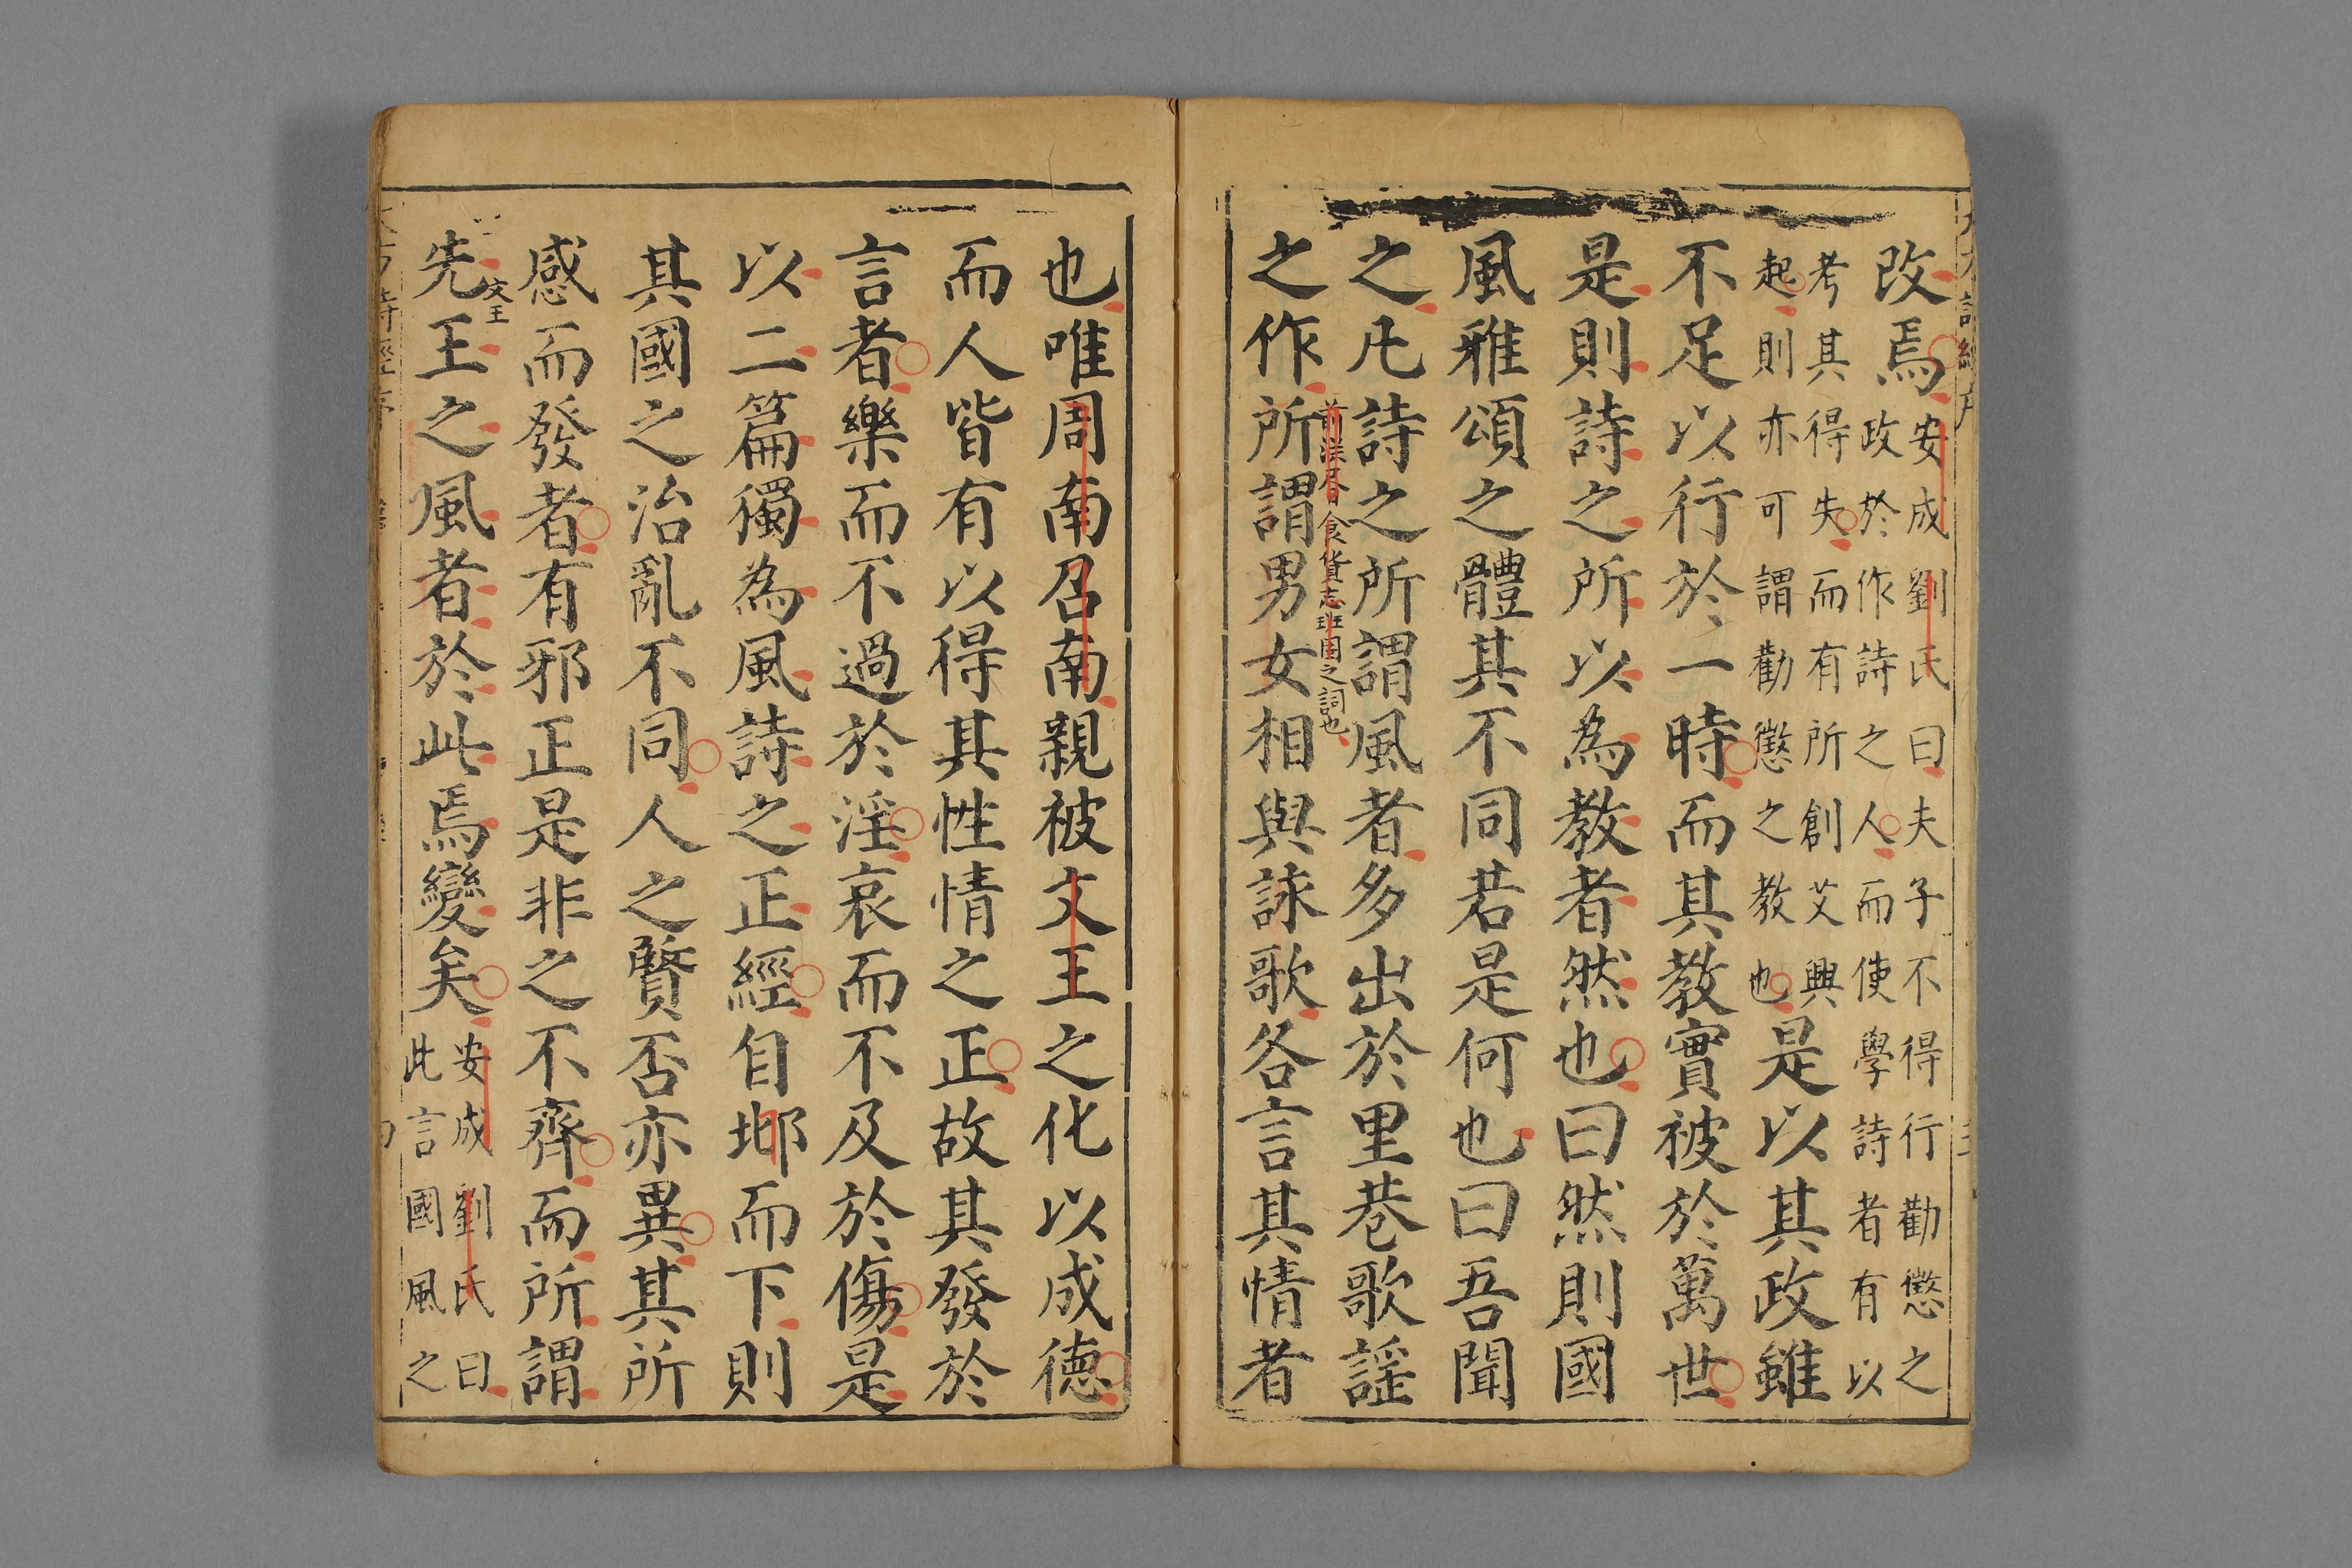 改焉
安成劉氏曰夫子不得行勸懲之
政於作詩之人而使學詩者有以
考其得失而有所創艾興
起則亦可謂勸懲之教也
是以其政雖
不足以行於一時而其教實被於萬世
是則詩之所以為教者然也曰然則國
風雅頌之體其不同若是何也曰吾聞
之凡詩之所謂風者多出於里巷歌謡
食貨志班固之詞也
之作所謂男女相與詠歌各言其情者
也唯周南召南親被文王之化以成德
而人皆有以得其性情之正故其發於
言者樂而不過於淫哀而不及於傷是
以二篇獨為風詩之正經自邶而下則
其國之治亂不同人之賢否亦異其所
感而發者有邪正是非之不齊而所謂
文王
先王之風者於此焉變矣
安成劉氏曰
此言國風之